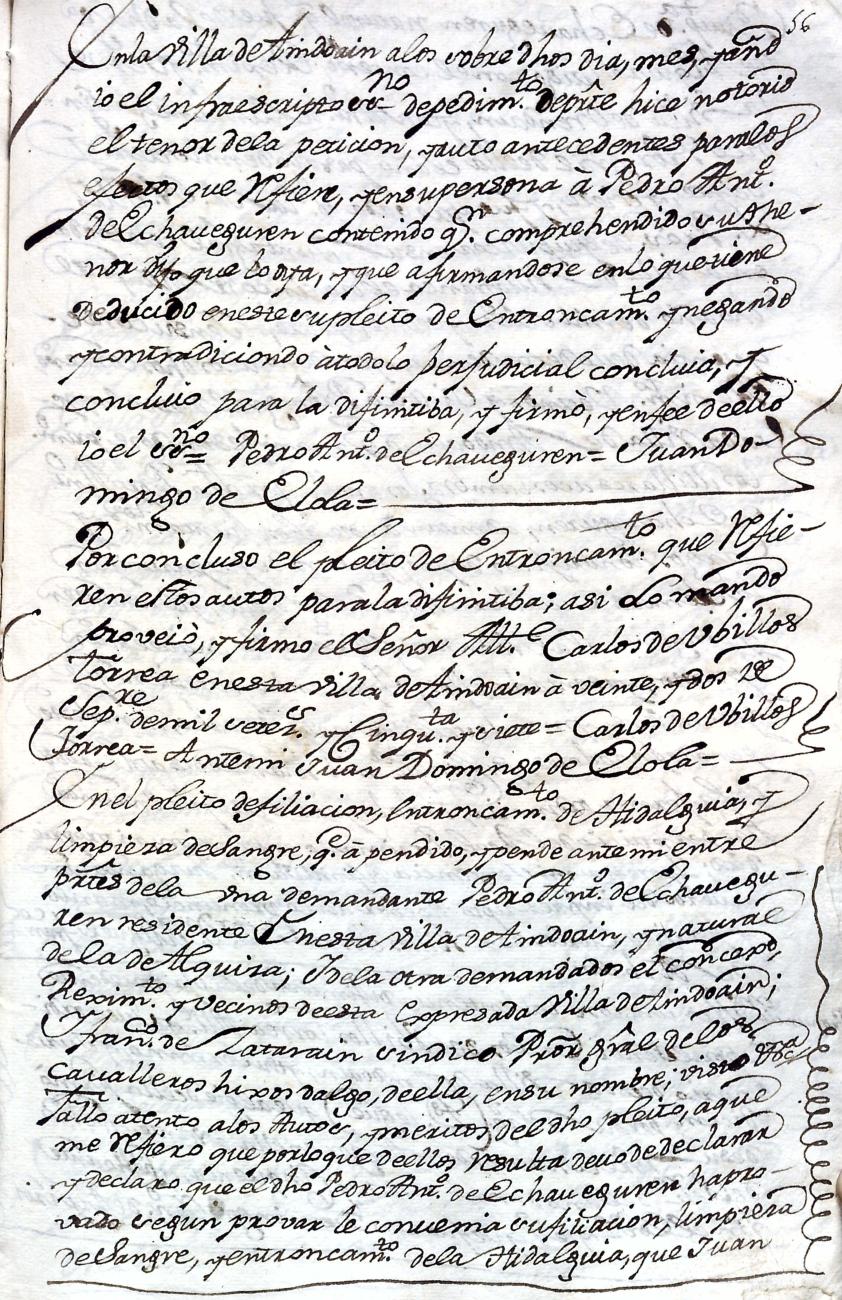 56
En la Villa de Andoain a los sobre dhos dia, mes, y año
io el infraescripto ssno de pedimto de prte hice notorio
el tenor de la peticion, y auto antecedentes para los
efectos que refiere, y en su persona à Pedro Anto.
de Echaueguren contenido qn. comprehendido su the-
nor dijo que lo oya, y que afirmandose en lo que viene
deducido en este su pleito de Entroncamto. y negando
y contradiciendo à todo lo perjudicial concluia, y
concluio para la difinitiba, y firmò, y en fee de ello
io el ssno = Pedro Anto. de Echaueguren = Juan Do-
mingo de Elola =
Por concluso el pleito de Entroncamto. que refie-
ren estos autos para la difinitiba; asi lo mandò
proveiò, y firmo el Señor Alle. Carlos de Vbillos
Torrea en esta Villa de Andoain à veinte, y dos de
Sepre. de mil setezs. y Cinqta. y siete = Carlos de Vbillos
Torrea = Ante mi Juan Domingo de Elola =
En el pleito de filiacion, entroncamto. de Hidalguia, y
limpieza de Sangre, q. à pendido, y pende ante mi entre
prtes de la vna demandante Pedro Anto. de Echauegu-
ren residente En esta Villa de Andoain, y natural
de la de Alquiza; I de la otra demandados el concexo,
Reximto. y Vecinos de esta expresada Villa de Andoain;
I frano. de Zatarain sindico Pror gral de los
Cavalleros hixos dalgo, de ella, en su nombre; visto &a
Fallo atento a los Autos, y meritos del dho pleito, a que
me refiero que por lo que de ellos resulta deuo de declarar
y declaro que el dho Pedro Anto. de Echaueguren ha pro-
vado segun provar le convenia su filiacion, limpieza
de Sangre, y entroncamto. de la Hidalguia, que Juan